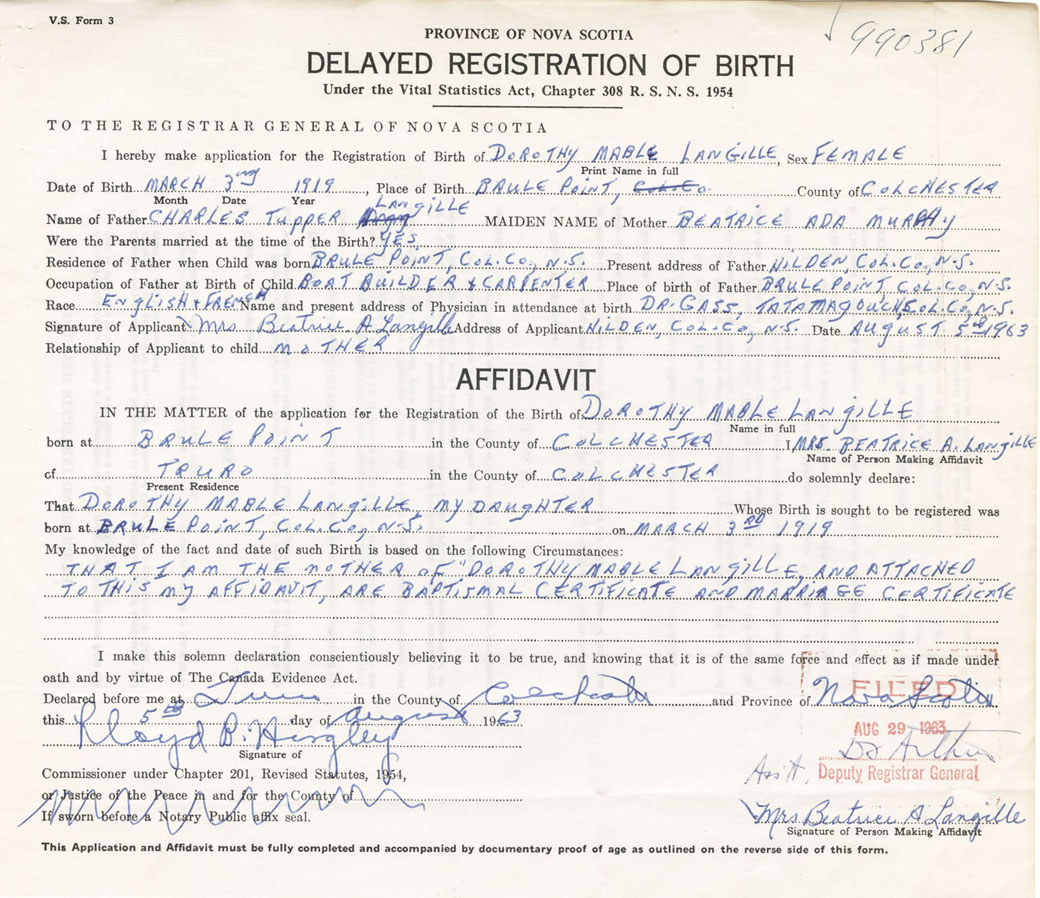 V.S. Form 3
990381
PROVINCE OF NOVA SCOTIA
DELAYED REGISTRATION OF BIRTH
Under the Vital Statistics Act, Chapter 308 R. S. N. S. 1954
TO THE REGISTRAR GENERAL OF NOVA SCOTIA
I hereby make application for the Registration of Birth of DOROTHY MABLE LANGILLE, Sex FEMALE
Print Name in full
Date of Birth MARCH 3rd 1919, Place of Birth BRULE POINT, Col. Co. County of COLCHESTER
Month Date Year
LANGILLE
Name of Father CHARLES TUPPER MAIDEN NAME of Mother BEATRICE ADA MURPHY
Were the Parents married at the time of the Birth? YES
Residence of Father when Child was born BRULE POINT, COL. CO, N.S. Present address of Father HILDEN, COL. CO, N.S.
Occupation of Father at Birth of Child BOAT BUILDER & CARPENTER Place of birth of Father BRULE POINT COL. CO, N.S.
Race ENGLISH & FRENCH Name and present address of Physician in attendance at birth DR. GASS, TATAMAGOUCHE, COL. CO, N.S.
Signature of Applicant Mrs Beatrice A Langille Address of Applicant HILDEN, COL. CO, N.S. Date AUGUST 5th 1963
Relationship of Applicant to child MOTHER
AFFIDAVIT
IN THE MATTER of the application for the Registration of the Birth of DOROTHY MABLE LANGILLE
Name in full
born at BRULE POINT in the County of COLCHESTER I MRS. BEATRICE A. LANGILLE
Name of Person Making Affidavit
of TRURO in the County of COLCHESTER do solemnly declare:
Present Residence
That DOROTHY MABLE LANGILLE, MY DAUGHTER Whose Birth is sought to be registered was
born at BRULE POINT, COL. CO, N.S. on MARCH 3RD 1919
My knowledge of the fact and date of such Birth is based on the following Circumstances:
THAT I AM THE MOTHER OF "DOROTHY MABLE LANGILLE, AND ATTACHED
TO THIS MY AFFIDAVIT, ARE BAPTISMAL CERTIFICATE AND MARRIAGE CERTIFICATE
I make this solemn declaration conscientiously believing it to be true, and knowing that it is of the same force and effect as if made under
oath and by virtue of The Canada Evidence Act.
Declared before me at Truro in the County of Colchester and Province of Nova Scotia
FILED
this 5th day of August 1963
AUG 29 1963
Lloyd B. Hingley
Signature of
Ass't. Deputy Registrar General
Commissioner under Chapter 201, Revised Statutes, 1954,
or Justice of the Peace in and for the County of
If sworn before a Notary Public affix seal.
Mrs Beatrice A Langille
Signature of Person Making Affidavit
This Application and Affidavit must be fully completed and accompanied by documentary proof of age as outlined on the reverse side of this form.